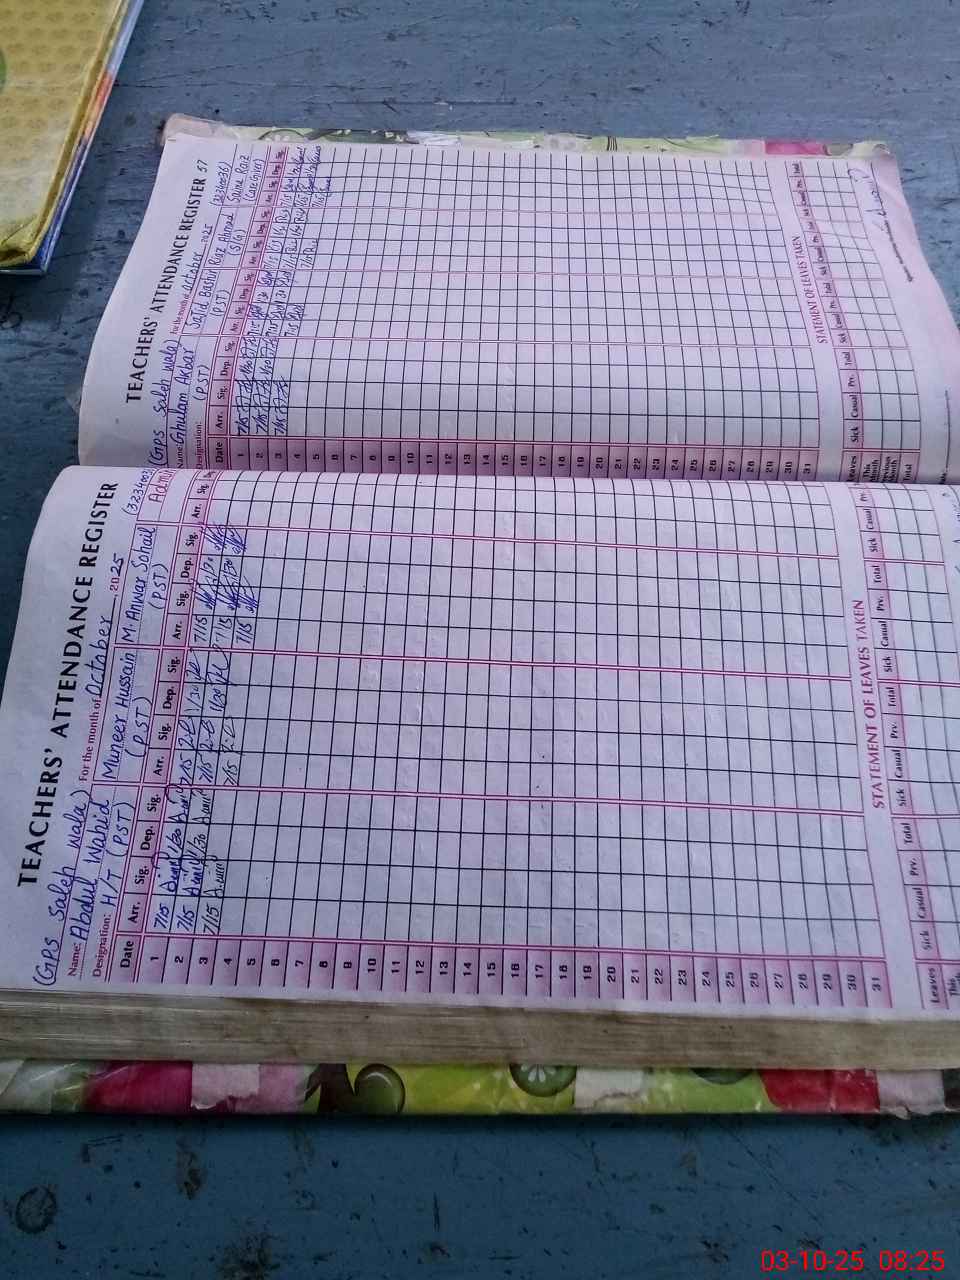 TEACHERS' ATTENDANCE REGISTER
(GPS Saleh wala) For the month of October 2025 (3234003
Name: Abdul Wahid Muneer Hussain M. Anwar Sohail Admin
Designation: H/T (PST) (PST) (PST)
Date Arr. Sig. Dep. Sig. Arr. Sig. Dep. Sig. Arr. Sig. Dep. Sig. Arr. Sig.
1 7/15 1/30 7/15 1/30 7/15 1/30
2 7/15 1/30 7/15 1/30 7/15 1/30
3 7/15 7/15 7/15
4
5
6
7
8
9
10
11
12
13
14
15
16
17
18
19
20
21
22
23
24
25
26
27
28
29
30
31
STATEMENT OF LEAVES TAKEN
Leaves Sick Casual Prv. Total Sick Casual Prv. Total Sick Casual Prv. Total Sick Casual Prv.
This
TEACHERS' ATTENDANCE REGISTER 57
(GPS Saleh wala) For the month of October 2025 (32340036)
Name: Ghulam Akbar Sajid Bashir Riaz Ahmad Saima Raiz
Designation: (PST) (PST) (S/G) (Care Giver)
Date Arr. Sig. Dep. Sig. Arr. Sig. Dep. Sig. Arr. Sig. Dep. Sig. Arr. Sig. Dep. Sig.
1 7/15 1/30 7/15 1/30 7/15 1/30 7/15 1/30
2 7/15 1/30 7/15 1/30 7/15 1/30 7/15 1/30
3 7/15 7/15 7/15 7/15
4
5
6
7
8
9
10
11
12
13
14
15
16
17
18
19
20
21
22
23
24
25
26
27
28
29
30
31
STATEMENT OF LEAVES TAKEN
Leaves Sick Casual Prv. Total Sick Casual Prv. Total Sick Casual Prv. Total Sick Casual Prv. Total
This Month
Previous Month
Total
03-10-25 08:25